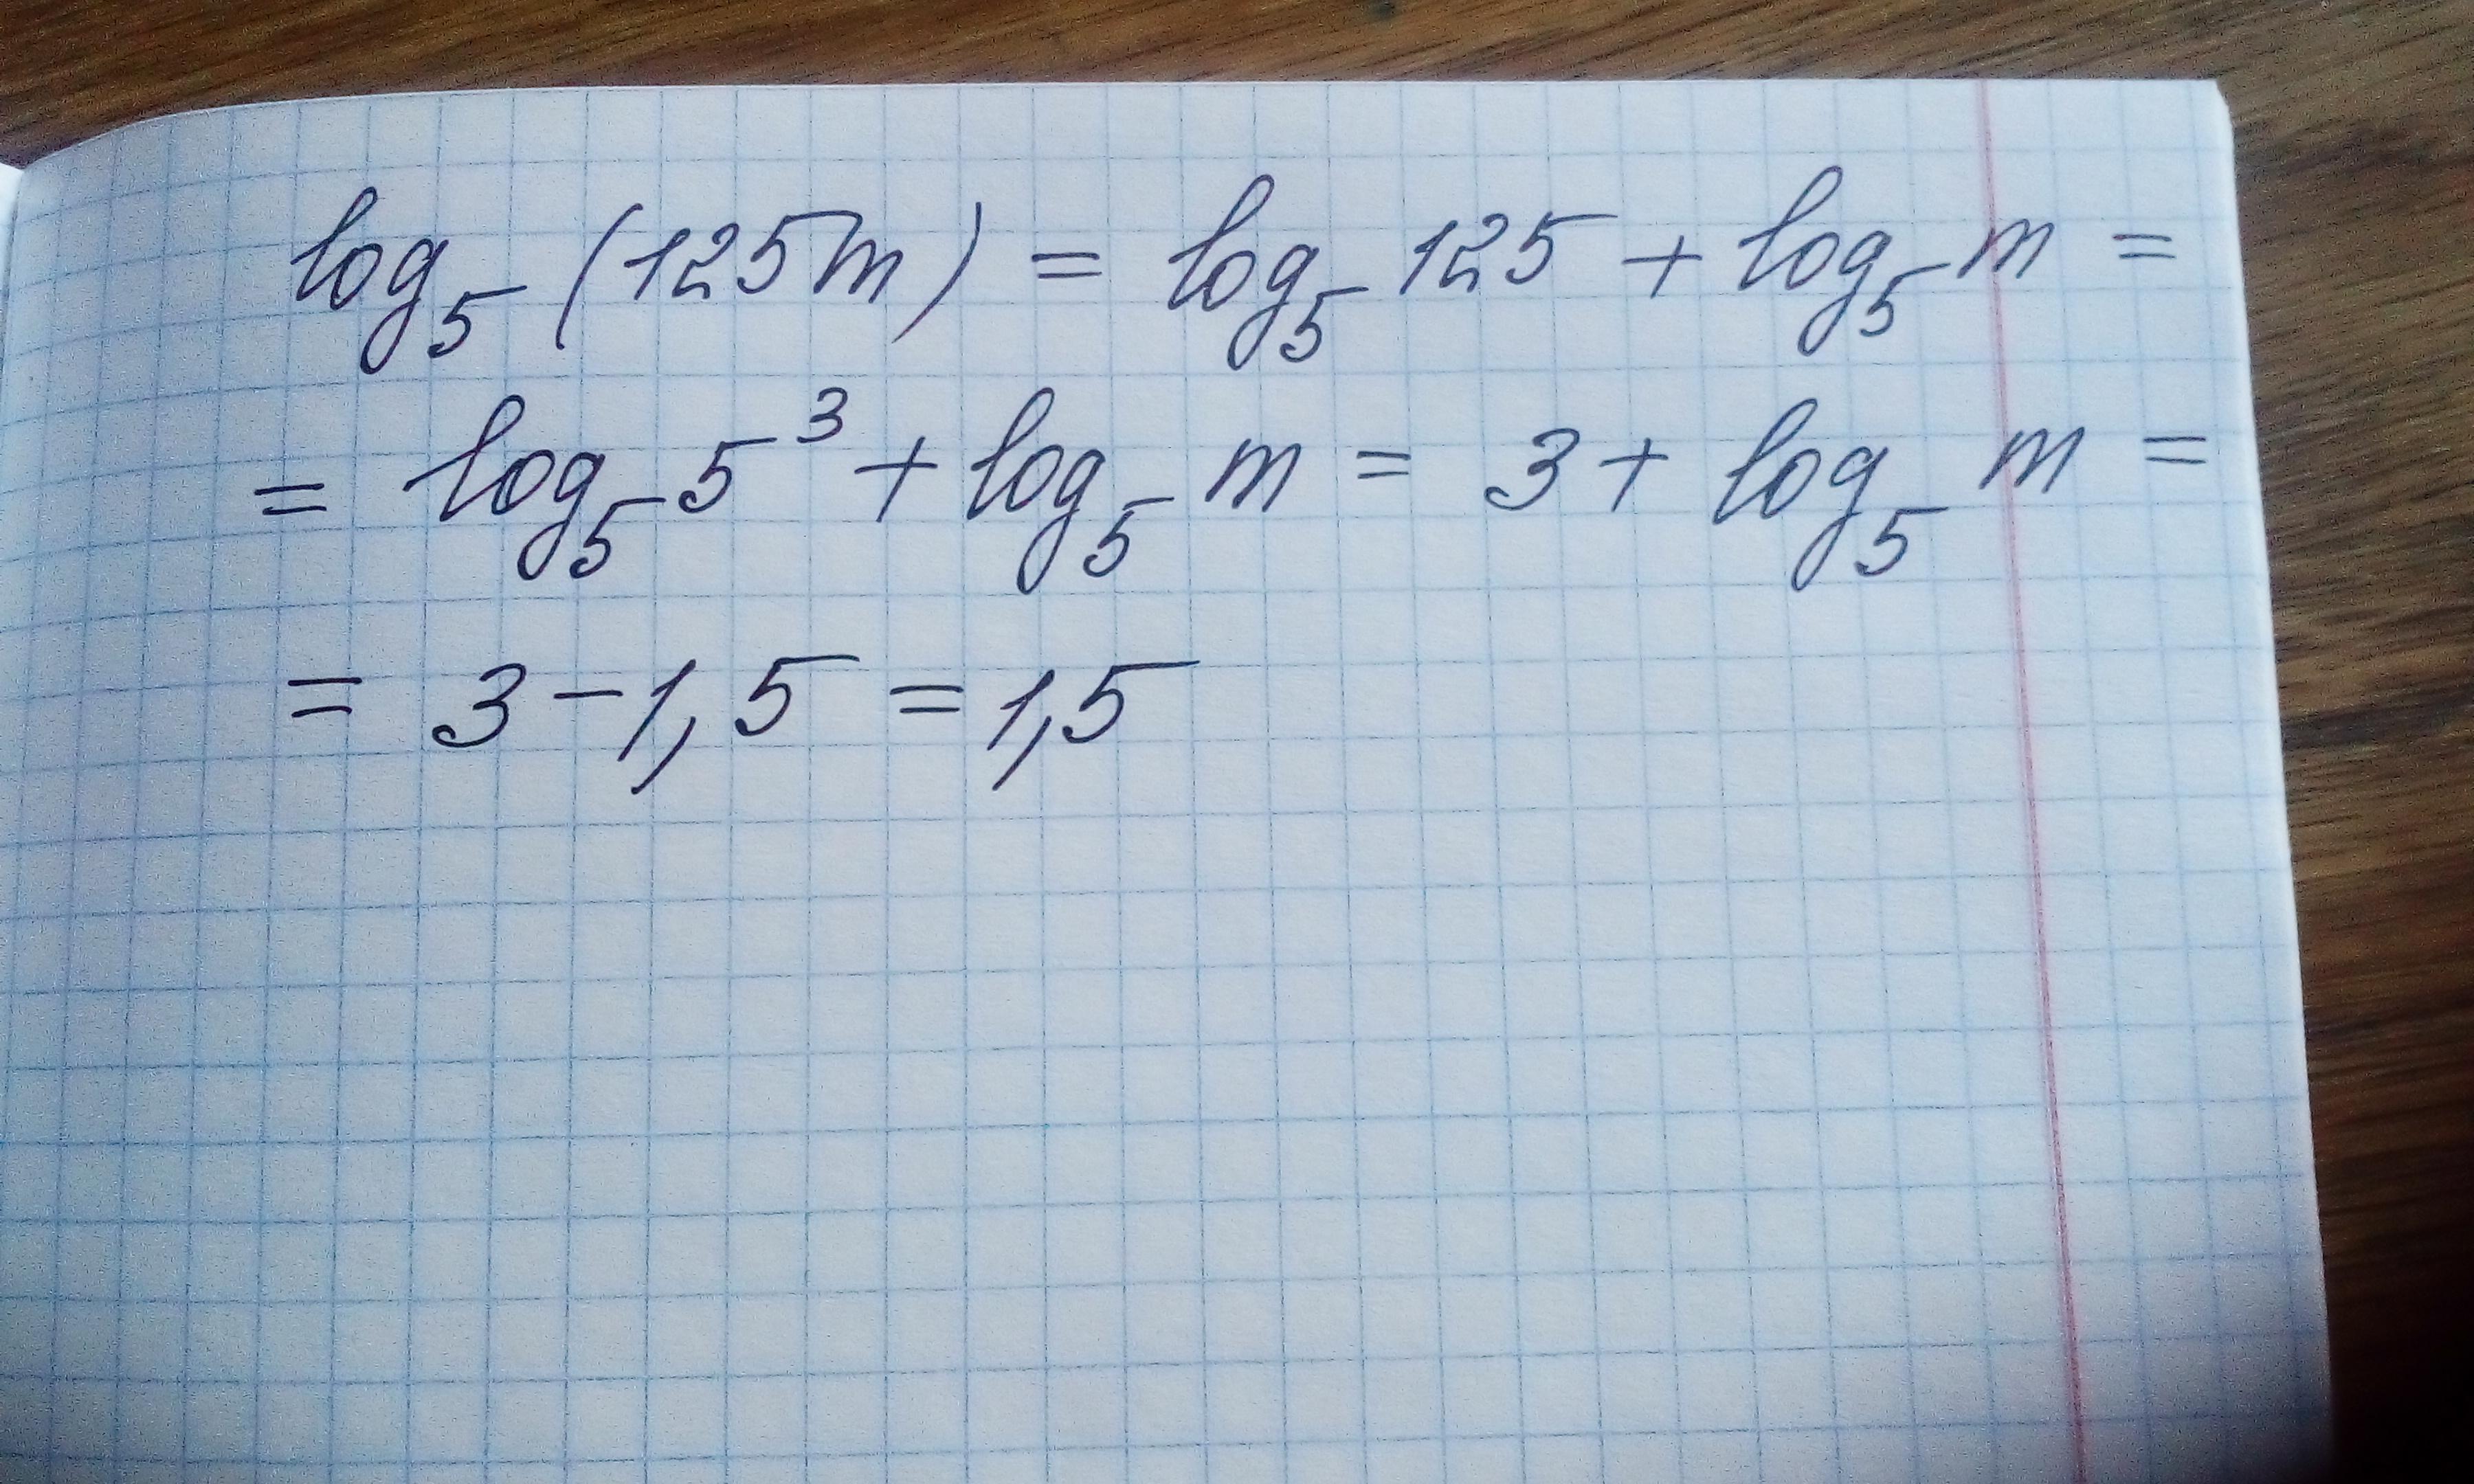 log₅(125m) = log₅125 + log₅m =
= log₅5³ + log₅m = 3 + log₅m =
= 3 - 1,5 = 1,5